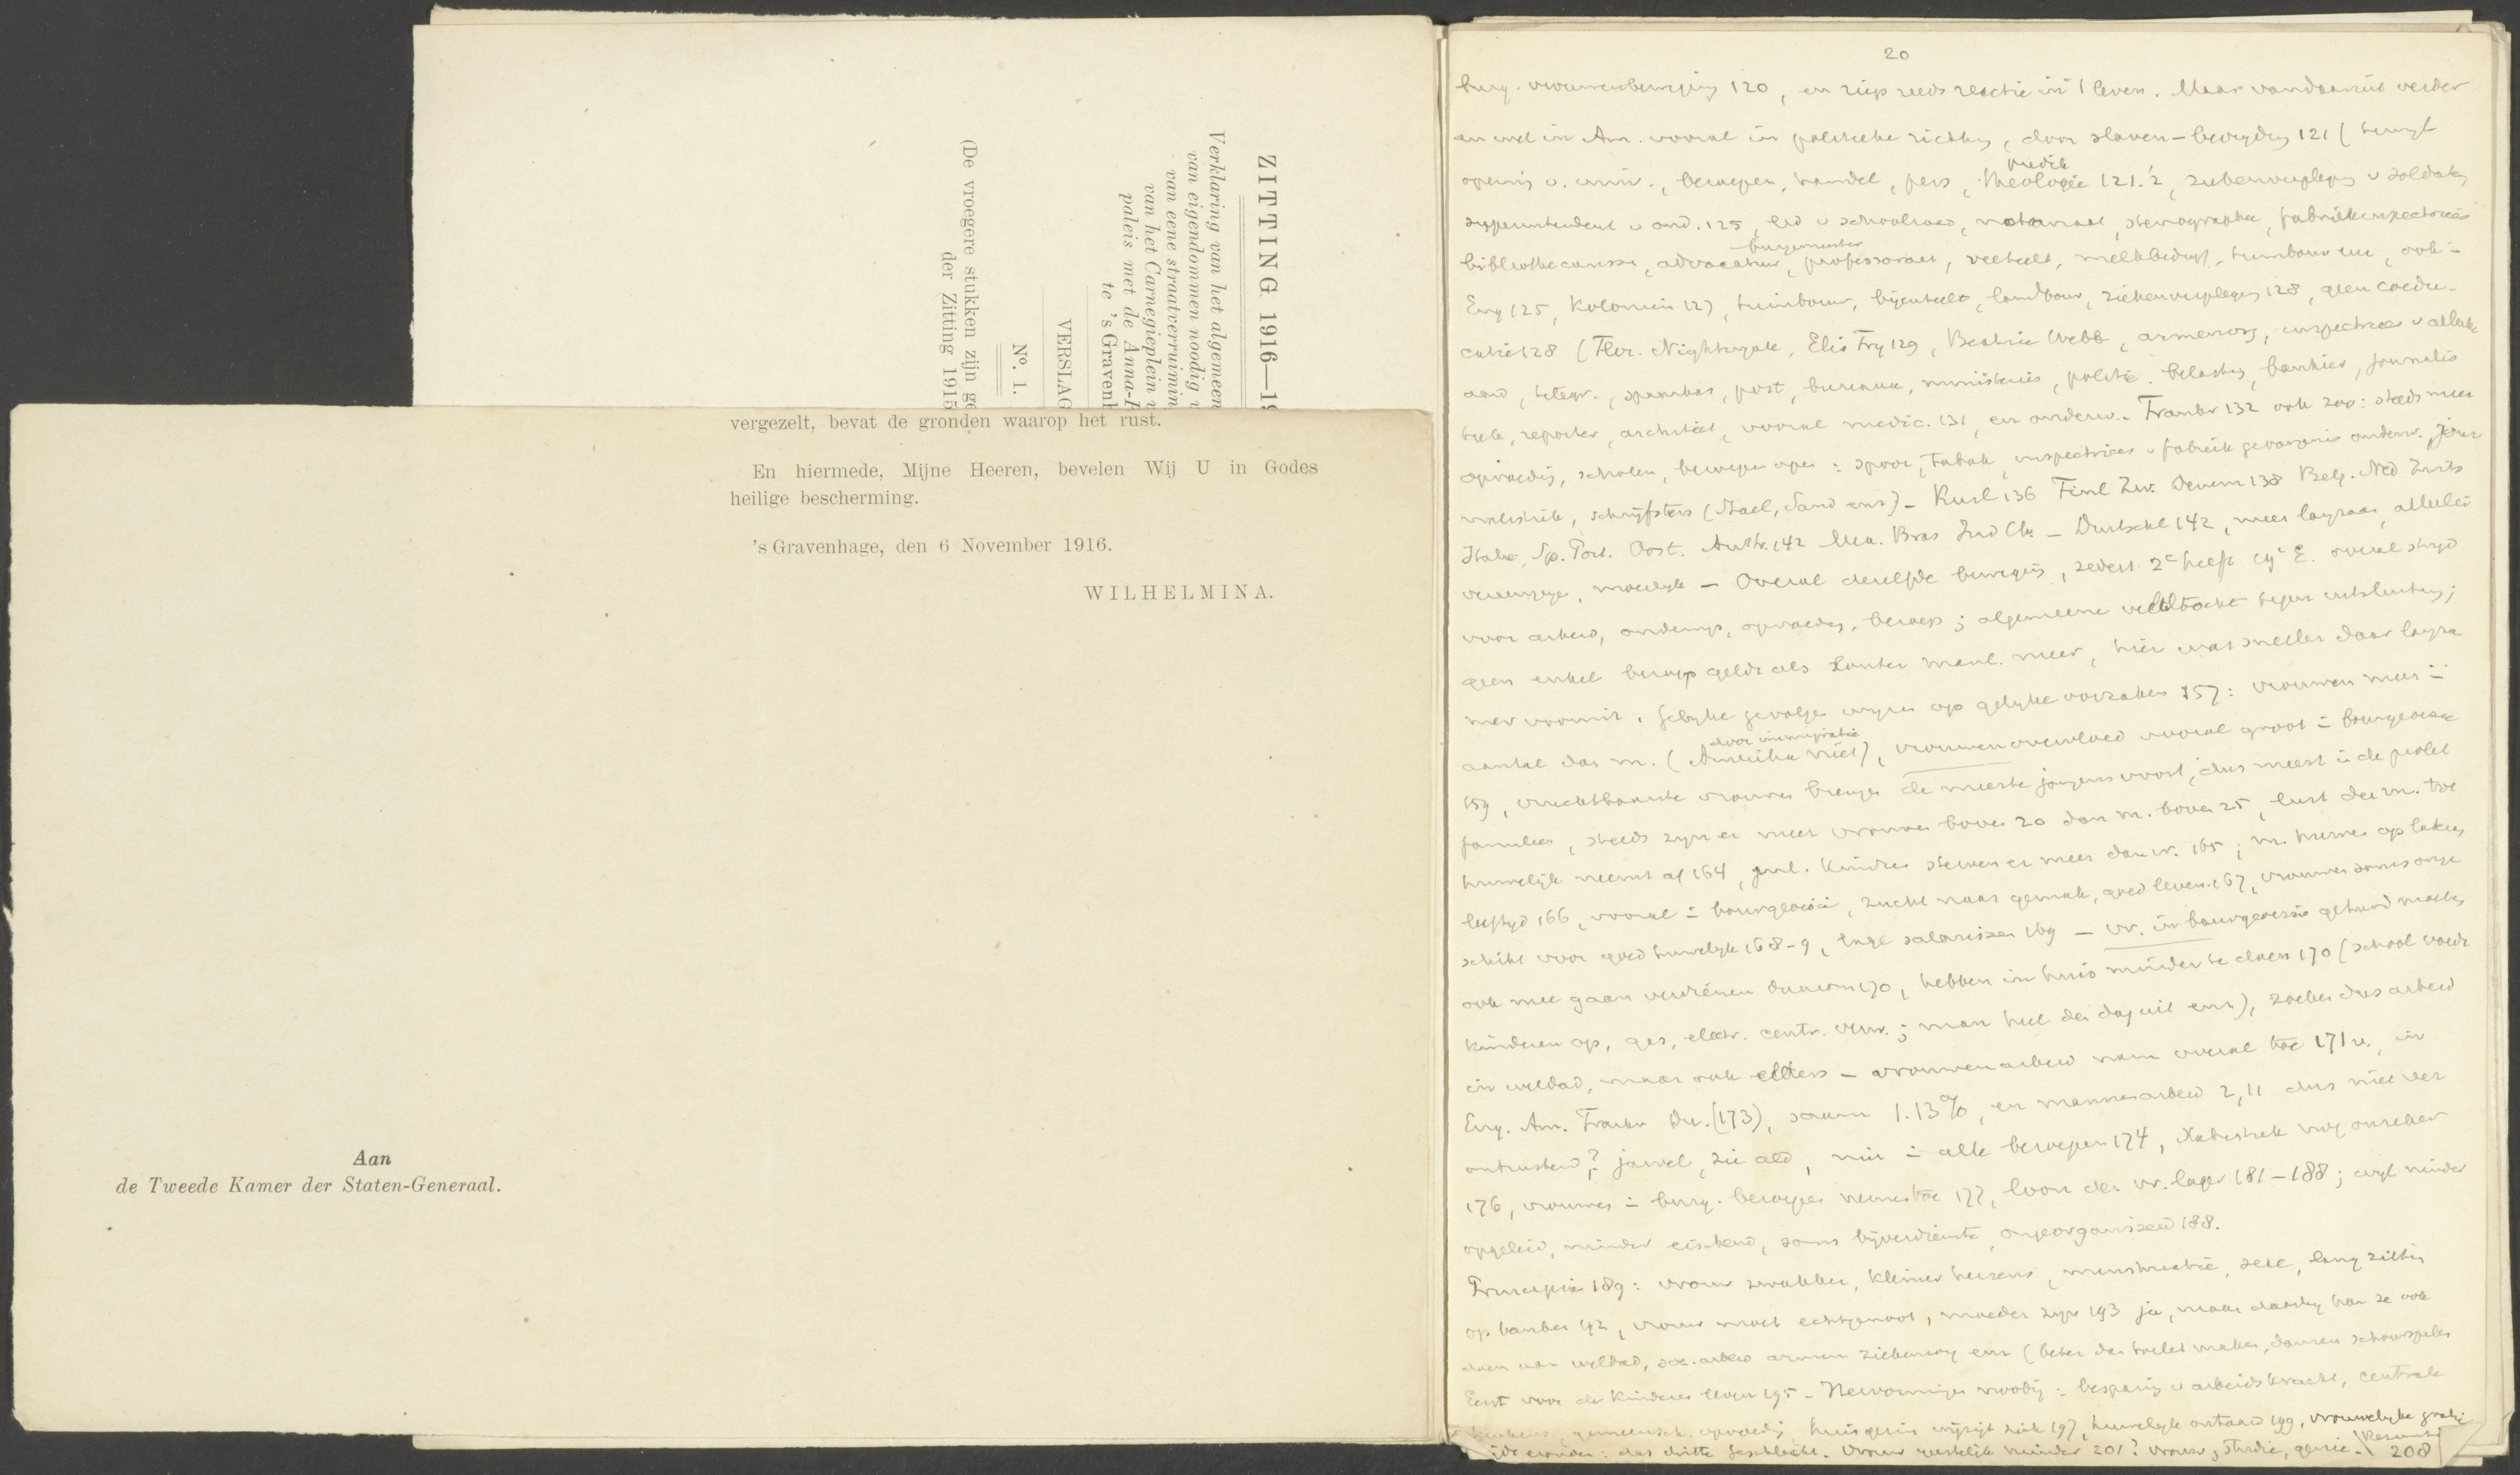 ZITTING 1916—19
Verklaring van het algemeen
van eigendommen noodig v
van eene straatverruimin
van het Carnegieplein v
paleis met de Anna-P
te 's Gravenh
VERSLAG
No. 1.
(De vroegere stukken zijn ge
der Zitting 1915
vergezelt, bevat de gronden waarop het rust.
En hiermede, Mijne Heeren, bevelen Wij U in Godes
heilige bescherming.
's Gravenhage, den 6 November 1916.
WILHELMINA.
Aan
de Tweede Kamer der Staten-Generaal.
20
burg. vrouwenbeweging 120, en riep reeds reactie in 't leven. Maar vandaaruit verder
en wel in Am. vooral in politieke richting, door slaven-bevrijding 121
medic
beroepen, handel, pers, theologie 121.2, ziekenverpleging v soldaten
superintendent v ond. 125, lid v schoolraad, notariaat, stenographie, fabrieksinspectrices
burgemeester
bibliothecaresse, advocatuur, professoraat, veeteelt, melkbedrijf, tuinbouw enz, ook in
Eng 125, Koloniën 127, tuinbouw, bijenteelt, landbouw, ziekenverpleging 128, geen coedu-
catie 128 (Flor. Nightingale, Elis Fry 129, Beatrice Webb, armenzorg, inspectrices v
telegr., spaarbas, post, bureaux, ministeries, politie, belasting, bankier, journalis
tiek, reporter, architect, vooral medic. 131, en onderw. - Frankr 132 ook zoo: steeds meer
opvoeding, scholen, beroepen open: spoor, tabak, inspectrices v fabriek gevangenis onderw.
schrijfsters (Stael, Sand enz) - Rusl 136 Finl Zw. Denem 138 Belg. Ned Zwits
Italie, Sp. Port. Oost. Austr. 142 Mex. Bras Ind Ch. - Duitschl 142, meer langzaam, allerlei
moeilijk - Overal dezelfde beweging, sedert 2e helft 19e E. overal strijd
voor arbeid, onderwijs, opvoeding, beroep; algemeene veldtocht tegen uitsluiting;
geen enkel beroep geldt als louter manl. meer, hier wat sneller daar langza
mer vooruit. Gelijke gevolgen wijzen op gelijke oorzaken 157: vrouwen meer in
door immigratie
aantal dan m. (Amerika niet), vrouwenovervloed vooral groot in bourgeoisie
159, vruchtbaarste vrouwen brengen de meeste jongens voort, dus meest in de prolet
families, steeds zijn er meer vrouwen boven 20 dan m. boven 25, lust der m. tot
huwelijk neemt af 164, manl. kinderen sterven er meer dan vr. 165; m. huwen op lateren
leeftijd 166, vooral in bourgeoisie, zucht naar gemak, goed leven 167, vrouwen soms onge
schikt voor goed huwelijk 168-9, lage salarissen 169 - vr. in bourgeoisie gehuwd moeten
ook mee gaan verdienen daarom 170, hebben in huis minder te doen 170 (school voedt
kinderen op, gas, electr. centr. verw.; man heel den dag uit enz), zoeken dus arbeid
in weldad., maar ook elders - vrouwenarbeid nam overal toe 171 v., in
Eng. Am. Frankr Du. (173), saam 1.13%, en mannenarbeid 2,11 dus niet ver
ontrustend? jawel, zie ald, niet in alle beroepen 174, statistiek nog onzeker
176, vrouwen in burg. beroepen nemen toe 177, loon der vr. lager 181-188; wijl minder
opgeleid, minder eischend, soms bijverdienste, ongeorganiseerd 188.
Principia 189: vrouw zwakker, kleiner hersens, menstruatie, sexe, lang zitten
op banken 192, vrouw moet echtgenoot, moeder zijn 193 ja, maar daarbij kan ze ook
doen aan weldad, soc. arbeid armen ziekenzorg enz (beter dan toilet maken, dansen schouwspelen
Eerst voor de kinderen leven 195 - Hervormingen noodig: besparing v arbeidskracht, centrale
keukens, gemeensch. opvoeding, huisgezin wijzigt zich 197, huwelijk ontaard 199, vrouwelijke
das dritte Geschlecht. Vrouw geestelijk minder 201? vrouw, studie, genie. Resumé 208